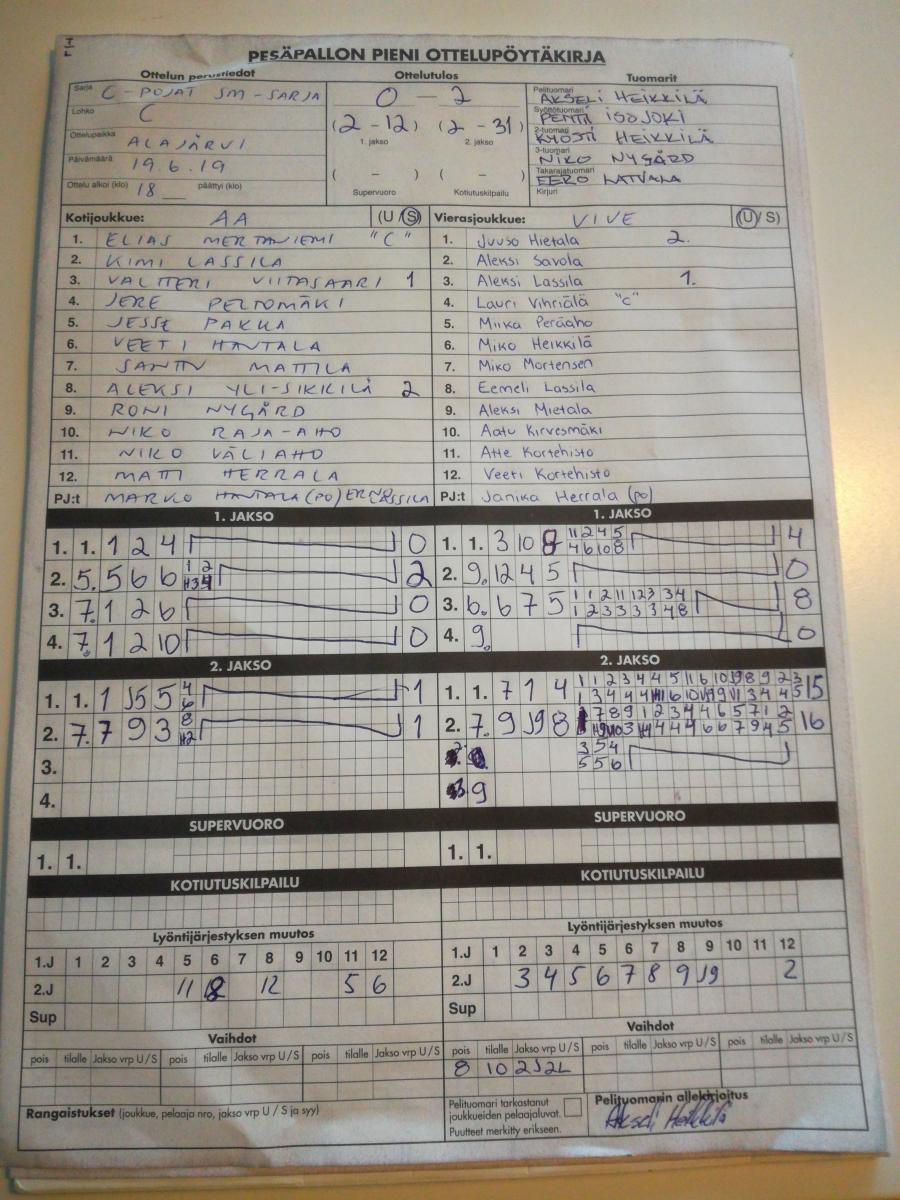 PESÄPALLON PIENI OTTELUPÖYTÄKIRJA
Ottelun perustiedot
Sarja C-POJAT SM-SARJA
Lohko C
Ottelupaikka ALAJÄRVI
Päivämäärä 19.6.19
Ottelu alkoi (klo) 18 päättyi (klo)
Ottelutulos
0 - 2
(2 - 12) (2 - 31)
1. jakso 2. jakso
( - ) ( - )
Supervuoro Kotiutuskilpailu
Tuomarit
Pelituomari AKSELI HEIKKILÄ
Syöttötuomari PENTTI ISOJOKI
2-tuomari KYÖSTI HEIKKILÄ
3-tuomari NIKO NYGÅRD
Takarajatuomari EERO LATVALA
Kirjuri
Kotijoukkue: AA (U/S)
1. ELIAS MERTANIEMI "C"
2. KIMI LASSILA
3. VALTTERI VIITASAARI 1
4. JERE PELTOMÄKI
5. JESSE PAKKA
6. VEETI HANTALA
7. SANTTU MATTILA
8. ALEKSI YLI-SIKKILÄ 2
9. RONI NYGÅRD
10. NIKO RAJA-AHO
11. NIKO VÄLIAHO
12. MATTI HERRALA
PJ:t MARKO HANTALA (PO) LASSILA
Vierasjoukkue: VIVE (U/S)
1. Juuso Hietala 2.
2. Aleksi Savola
3. Aleksi Lassila 1.
4. Lauri Vihriälä "C"
5. Miika Peräaho
6. Miko Heikkilä
7. Miko Mortensen
8. Eemeli Lassila
9. Aleksi Mietala
10. Aatu Kirvesmäki
11. Atte Kortehisto
12. Veeti Kortehisto
PJ:t Janika Herrala (po)
1. JAKSO
1. 1. 1 2 4 0
2. 5. 5 6 6 1 2 2
3. 7. 1 2 6 0
4. 7. 1 2 10 0
1. JAKSO
1. 1. 3 10 8 11 2 4 5 4
4 6 10 8
2. 9. 12 4 5 0
3. 6. 6 7 5 1 1 2 11 12 3 3 4 8
1 2 3 3 3 3 4 8
4. 9. 0
2. JAKSO
1. 1. 1 J5 5 4 1
6
2. 7. 7 9 3 8 1
H2
3.
4.
2. JAKSO
1. 1. 7 1 4 1 1 2 3 4 4 5 11 6 10 J9 8 9 2 3 15
2. 7. 9 J9 8 7 8 9 1 2 3 4 4 6 5 7 1 2 16
3 5 4
5 5 6
9
SUPERVUORO
1. 1.
SUPERVUORO
1. 1.
KOTIUTUSKILPAILU
KOTIUTUSKILPAILU
Lyöntijärjestyksen muutos
1.J 1 2 3 4 5 6 7 8 9 10 11 12
2.J 11 8 12 5 6
Sup
Lyöntijärjestyksen muutos
1.J 1 2 3 4 5 6 7 8 9 10 11 12
2.J 3 4 5 6 7 8 9 J9 2
Sup
Vaihdot
pois tilalle Jakso vrp U/S pois tilalle Jakso vrp U/S pois tilalle Jakso vrp U/S
Vaihdot
pois tilalle Jakso vrp U/S pois tilalle Jakso vrp U/S pois tilalle Jakso vrp U/S
8 10 2J2L
Rangaistukset (joukkue, pelaaja nro, jakso vrp U/S ja syy)
Pelituomari tarkastanut
joukkueiden pelaajaluvat.
Puutteet merkitty erikseen.
Pelituomarin allekirjoitus
Akseli Heikkilä